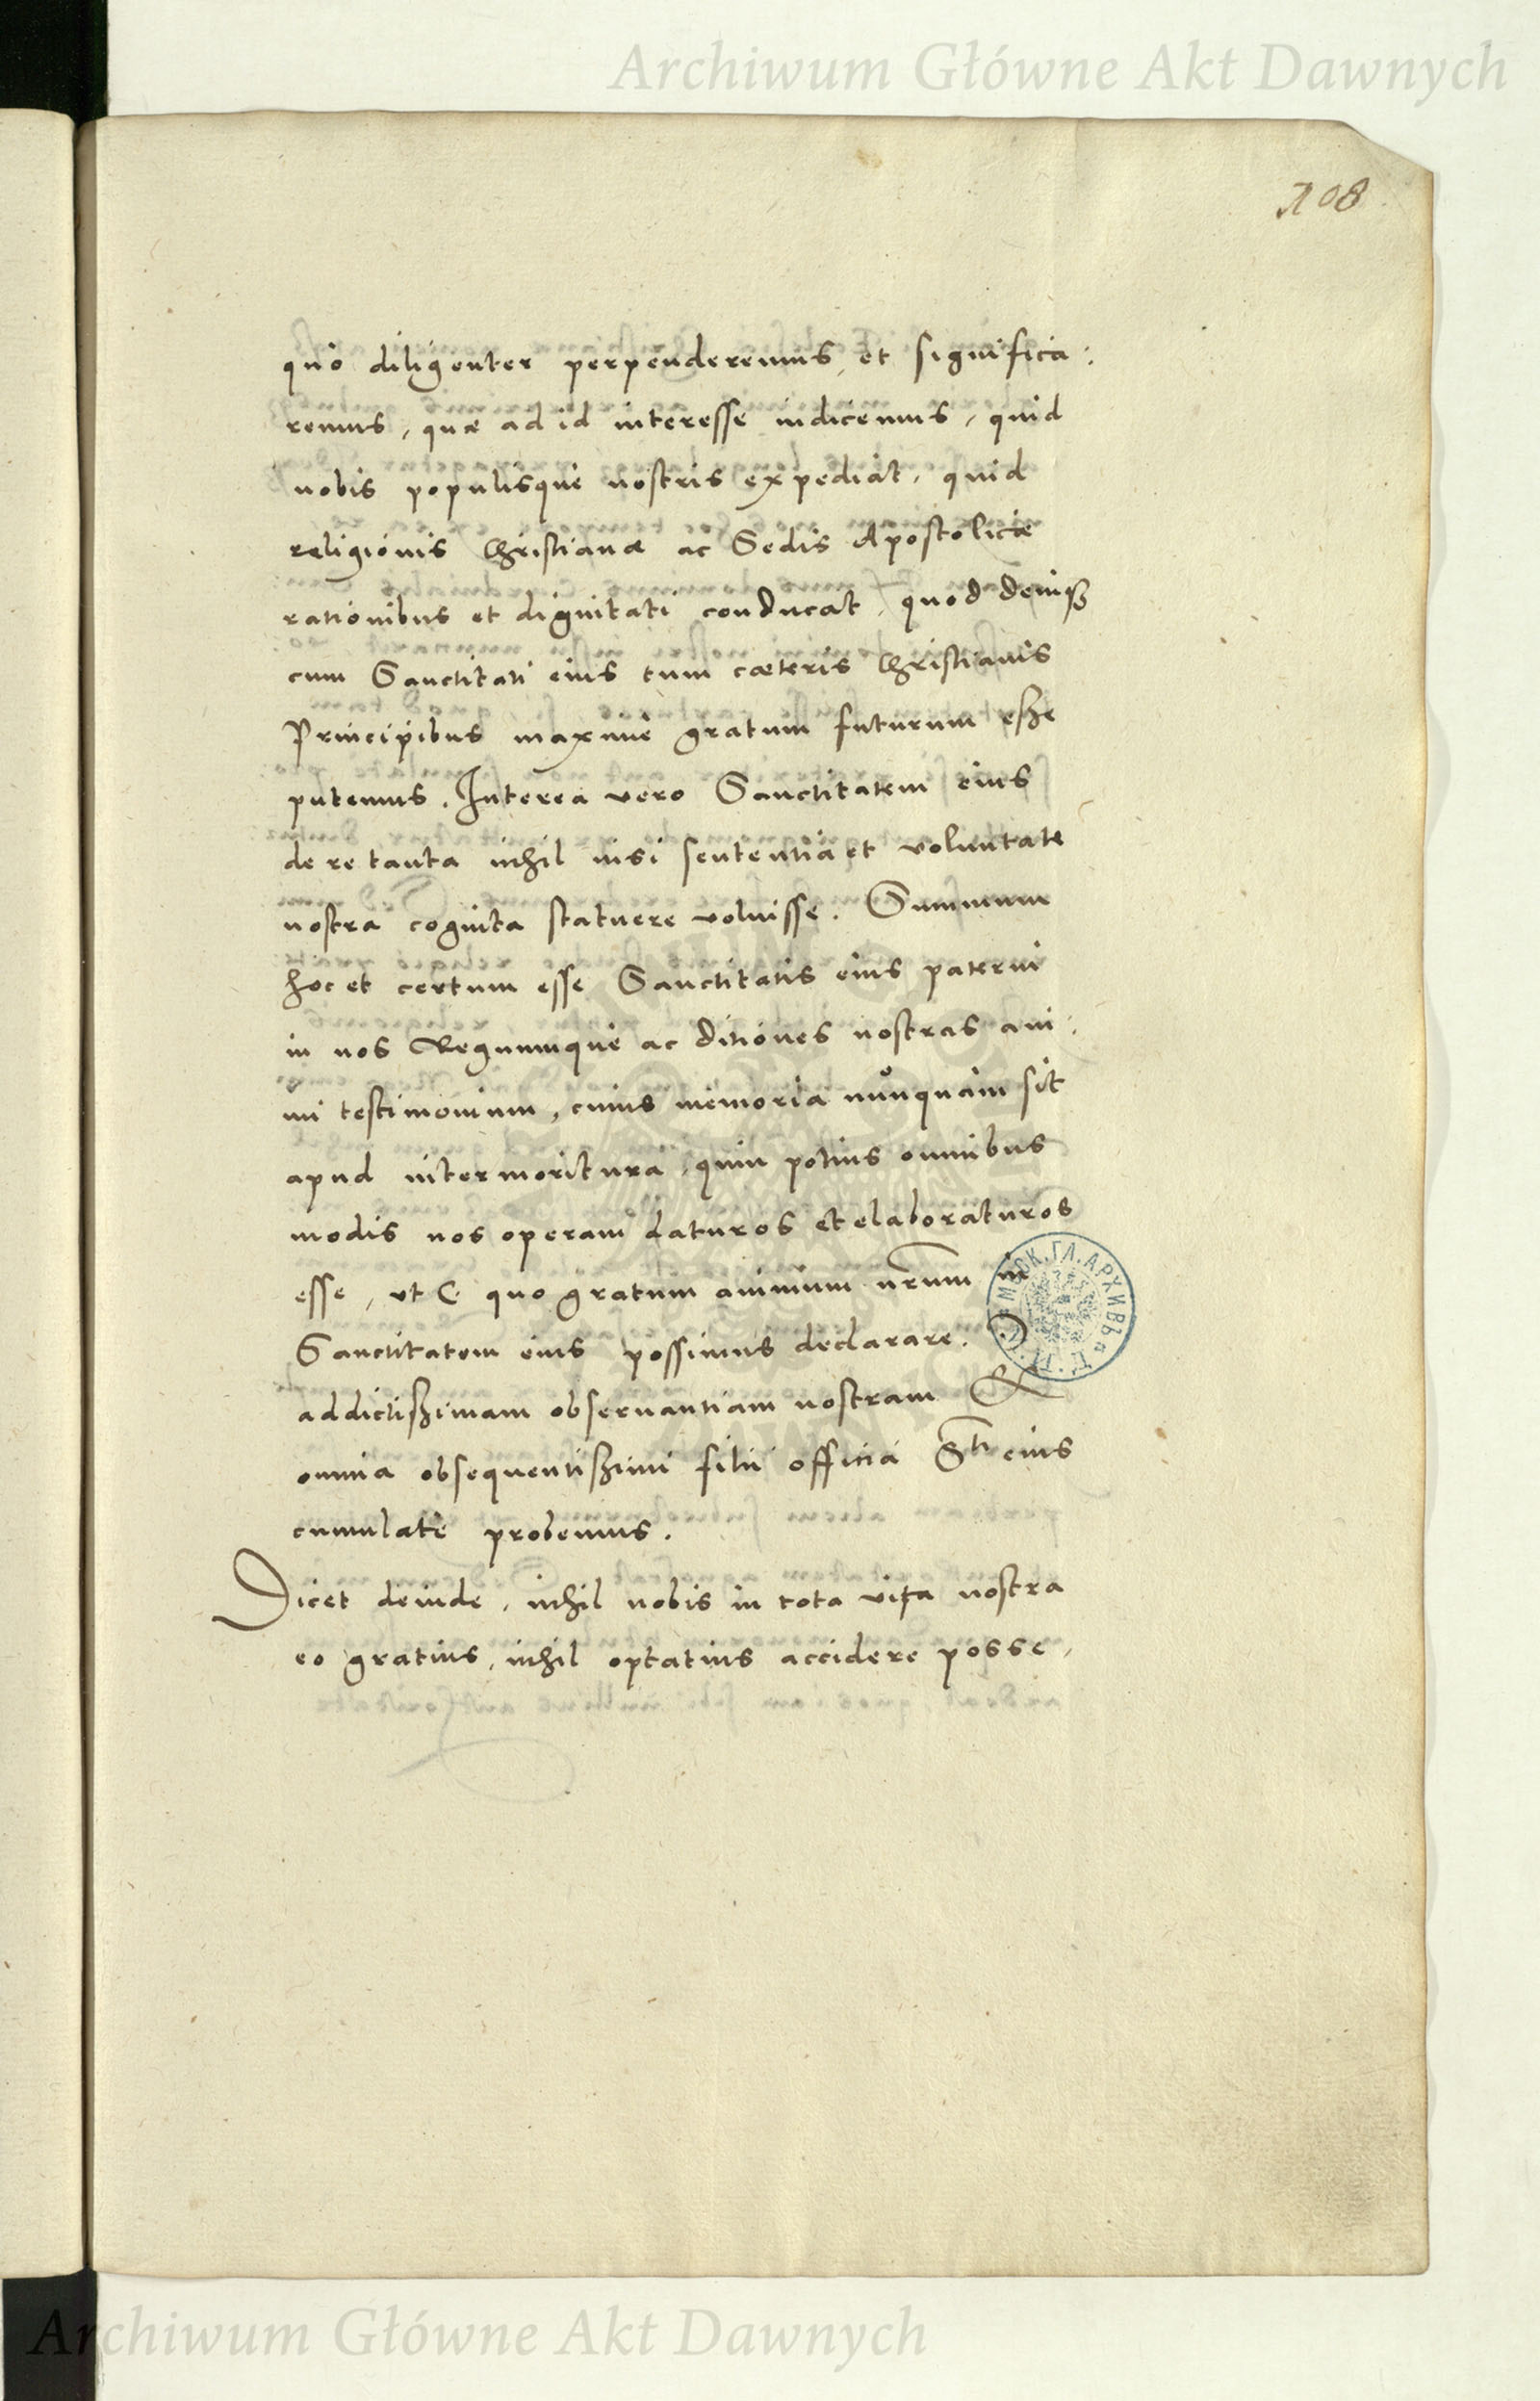 Archiwum Główne Akt Dawnych
108
quo diligenter perpenderemus, et significa:
remus, quæ ad id interesse iudicemus, quid
nobis populisque nostris expediat, quid
religionis Christianæ ac Sedis Apostolicæ
rationibus et dignitati conducat, quod deniqz
cum Sanctitati eius tum cæteris Christianis
Principibus maximè gratum futurum esse
putemus. Interea vero Sanctitatem eius
de re tanta nihil nisi sententia et voluntate
nostra cognita statuere voluisse. Summum
hoc et certum esse Sanctitatis eius paterni
in nos Regnumque ac ditiones nostras ani:
mi testimonium, cuius memoria nunquam sit
apud intermoritura, quin potius omnibus
modis nos operam daturos et elaboraturos
esse, ut & quo gratum animum nrum in
Sanctitatem eius possimus declarare.
addictissimam obseruantiam nostram &
omnia obsequentissimi filii officia Sti eius
cumulatè probemus.
Dicet deinde, nihil nobis in tota vita nostra
eo gratius, nihil optatius accidere posse,
МОСК. ГЛ. АРХИВЪ
Archiwum Główne Akt Dawnych